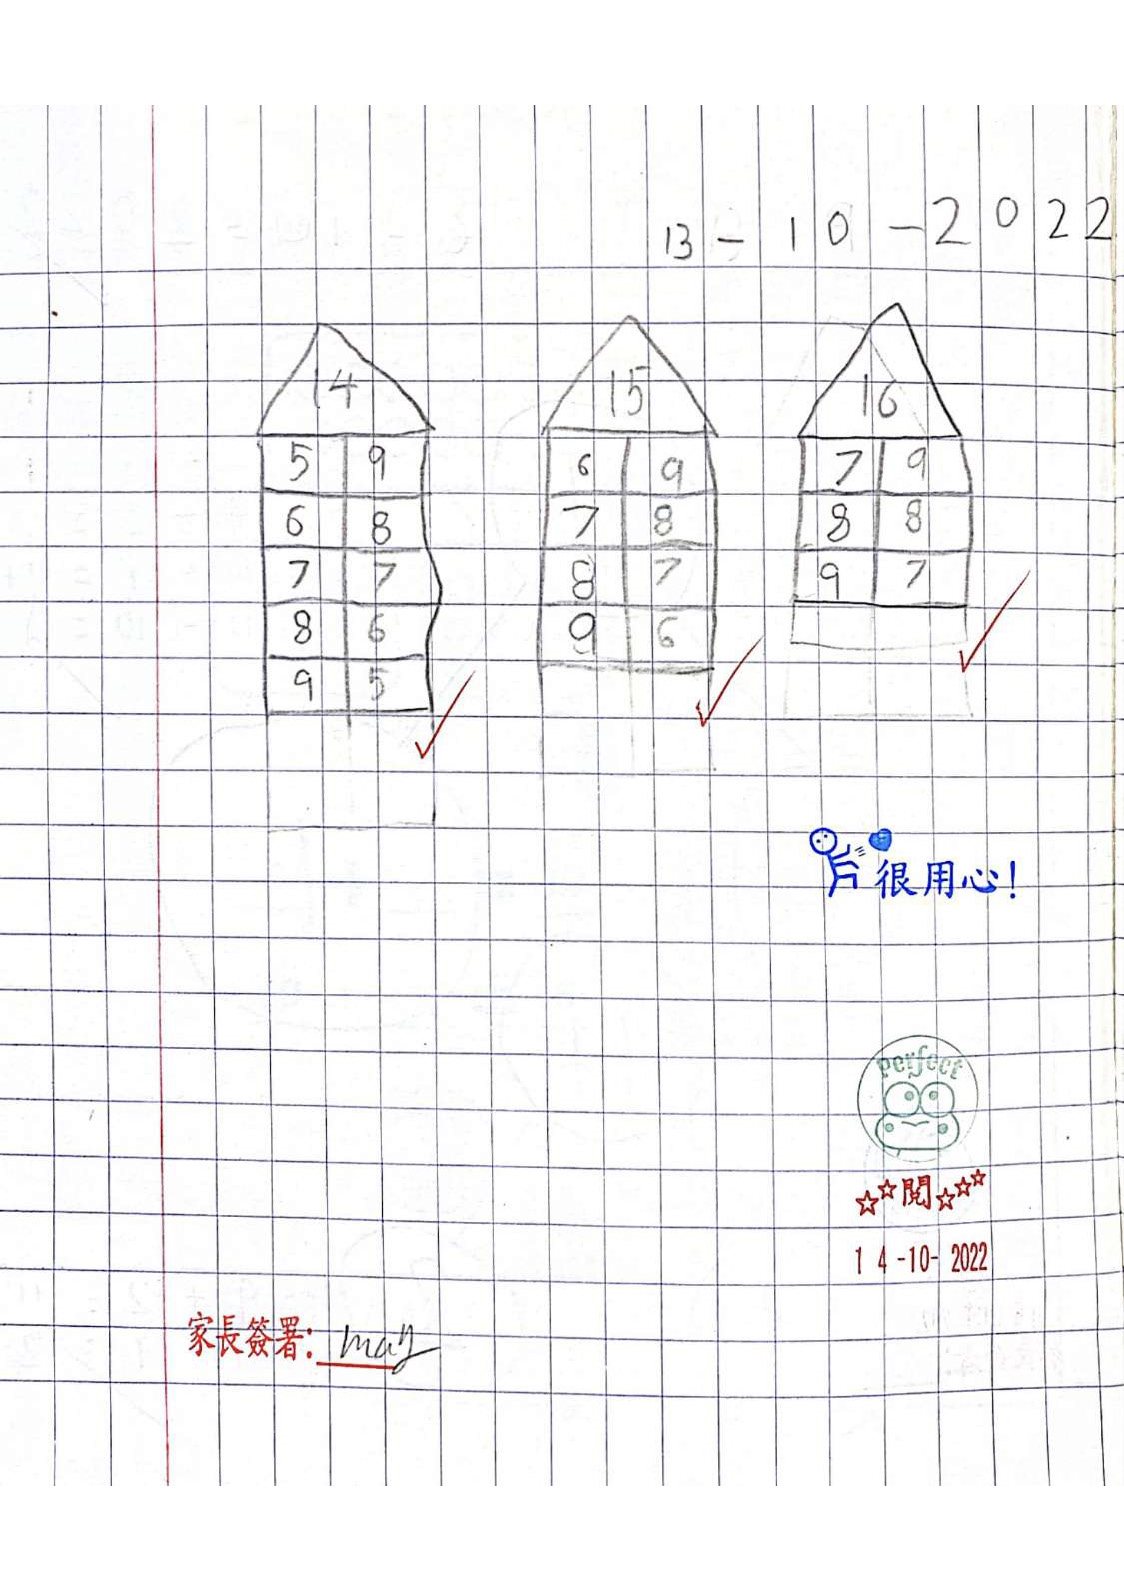 13 - 10 - 2022
14 15 16
5 9 6 9 7 9
6 8 7 8 8 8
7 7 8 7 9 7
8 6 9 6
9 5
很用心!
perfect
☆☆閱☆☆☆
14-10-2022
家長簽署: may